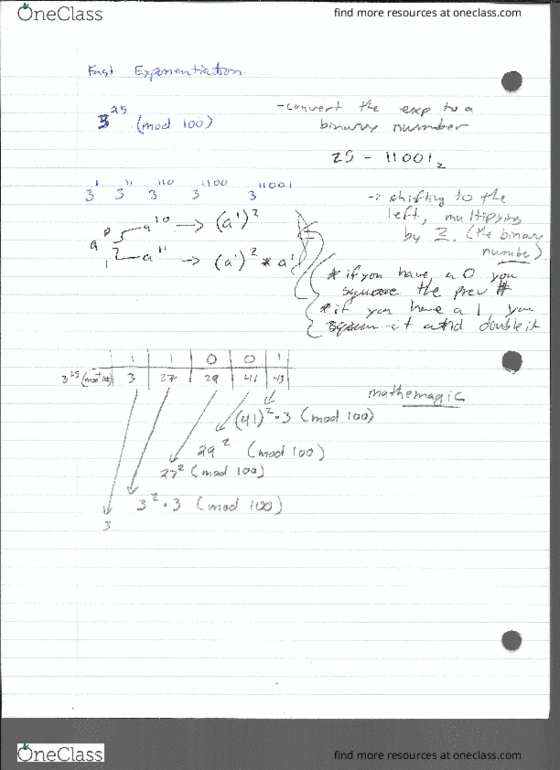 OneClass
find more resources at oneclass.com
Fast Exponentiation
3^25 (mod 100)
- convert the exp to a
binary number
25 - 11001₂
3^1 3^11 3^110 3^1100 3^11001
-> shifting to the
left, multiplying
by 2. (the binary
number)
a^10 → (a^1)^2
a^11 → (a^1)^2 * a^1
* if you have a 0 you
square the prev #
* if you have a 1, you
it and double it
1 1 0 0 1
3 27 29 41 43
mathemagic
(41)^2 · 3 (mod 100)
29^2 (mod 100)
27^2 (mod 100)
3^2 · 3 (mod 100)
3
OneClass
find more resources at oneclass.com